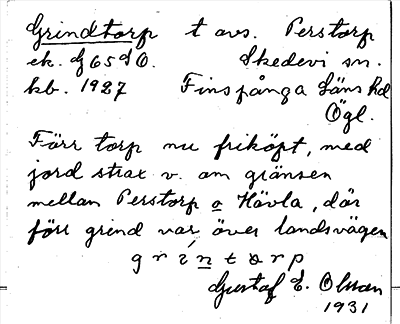 Grindtorp t avs. Perstorp
ek. G 65 d O. Skedevi sn.
kb. 1927 Finspånga Läns hd
Ögl.
Förr torp nu friköpt, med
jord strax v. om gränsen
mellan Perstorp o Hävla, där
förr grind var över landsvägen
grintorp
Gustaf E. Olsson
1931